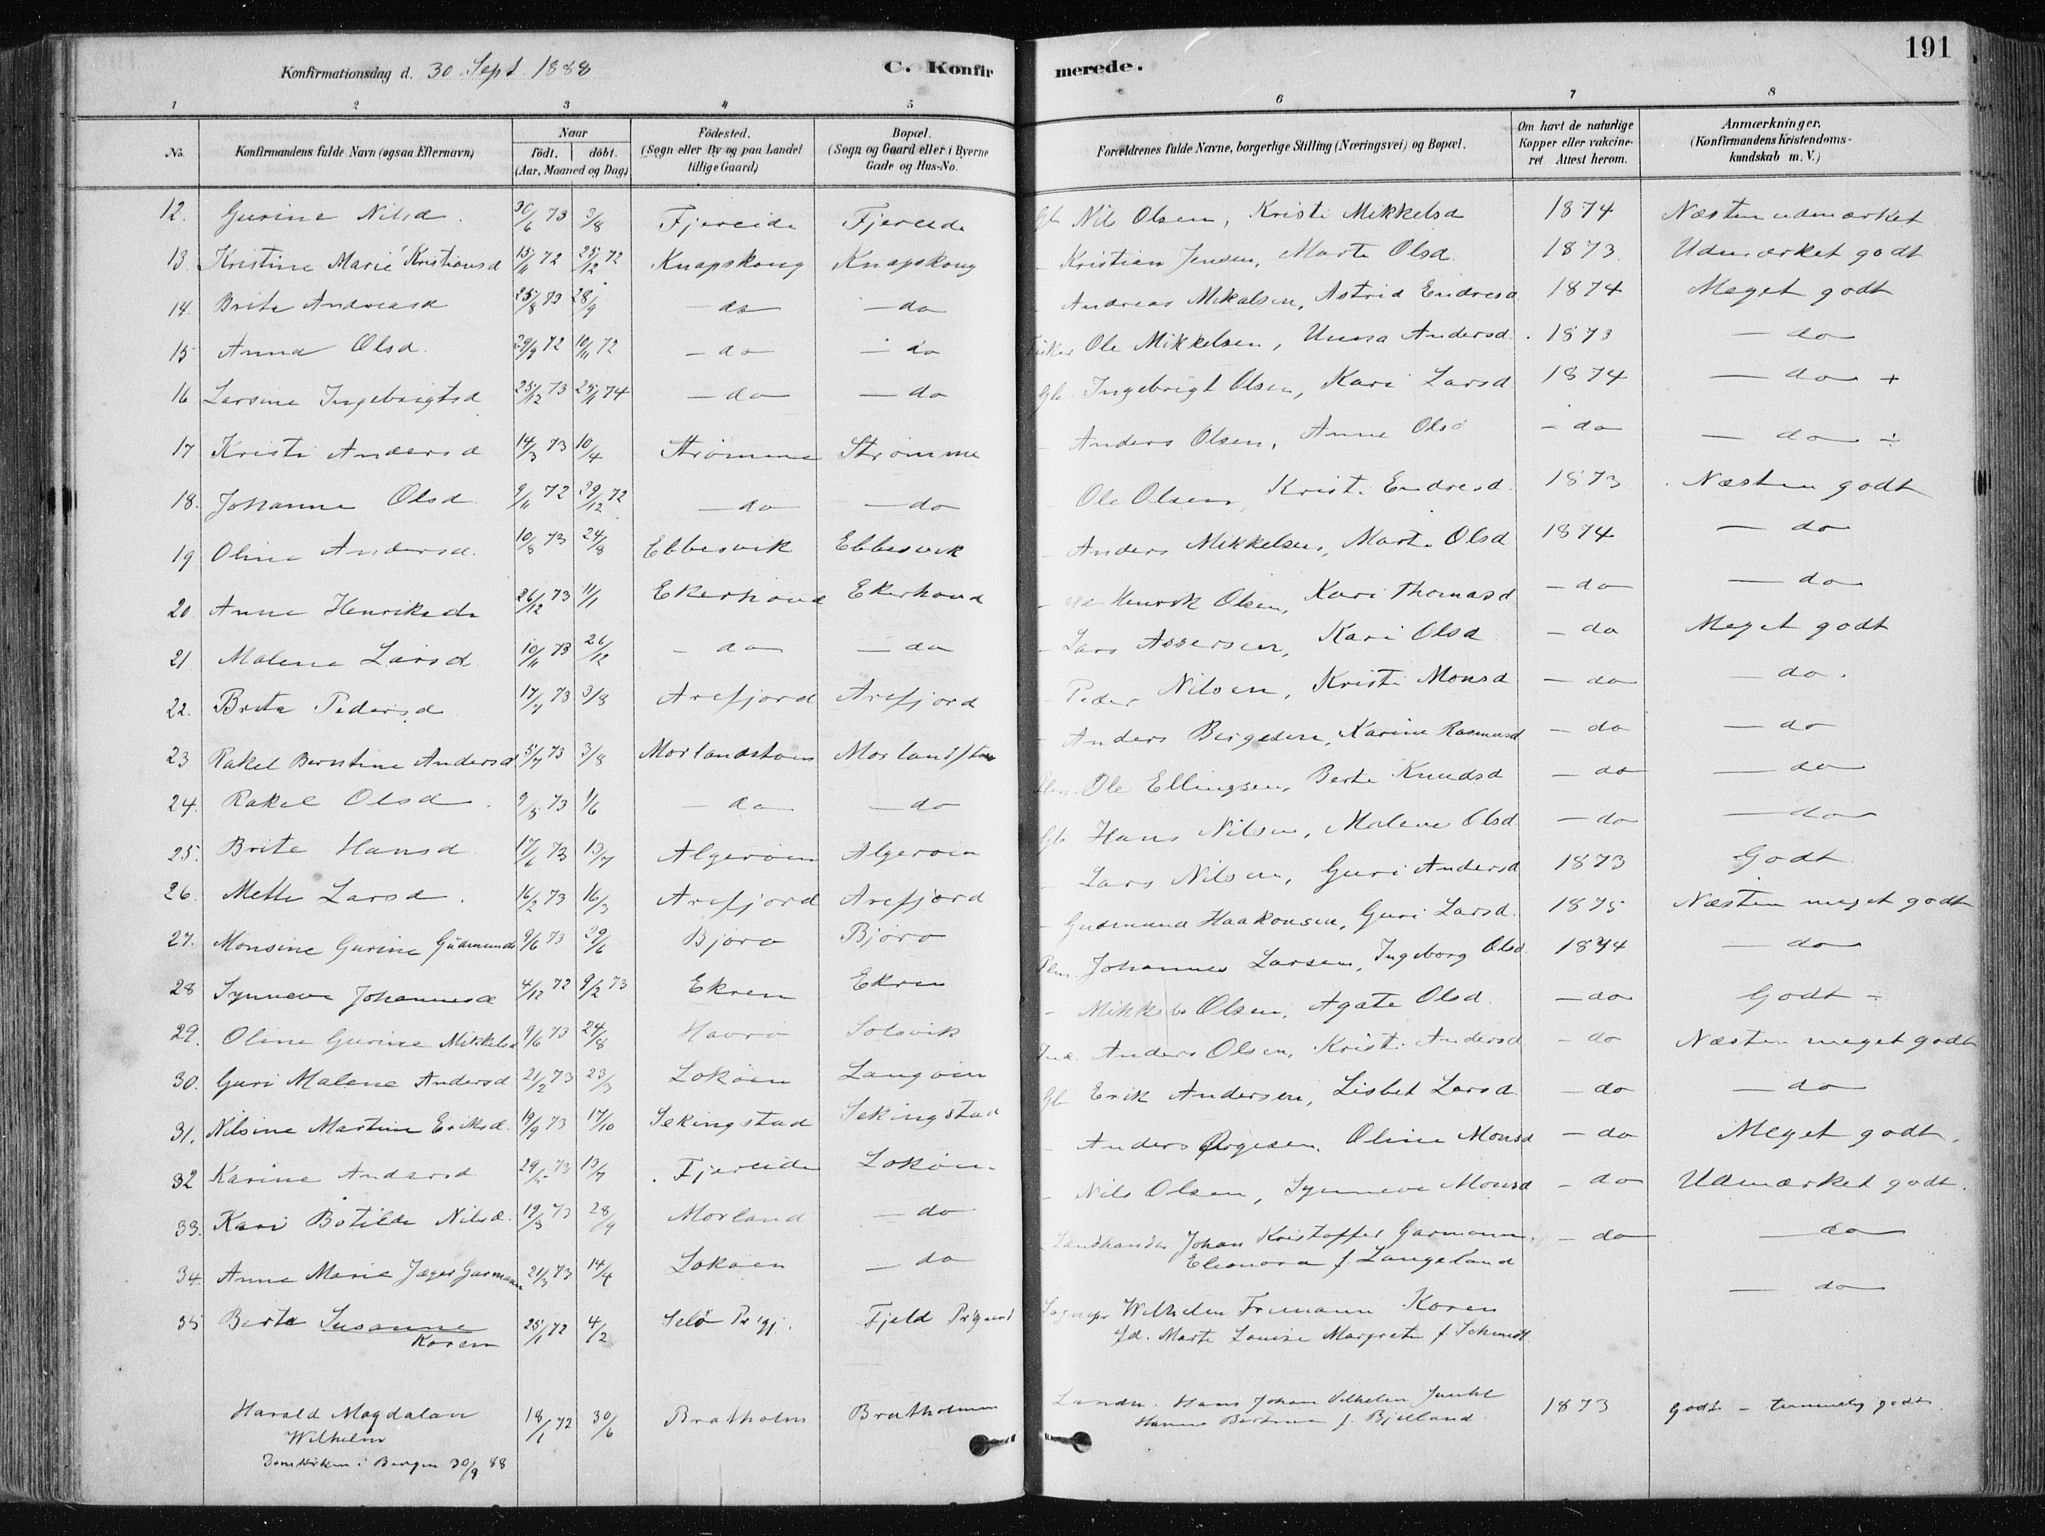 191
Konfirmationsdag d. 30 Sept. 1888 C. Konfirmerede.
1 2 3 4 5 6 7 8
No. Konfirmandens fulde Navn (ogsaa Efternavn) Naar født. døbt. (Aar, Maaned og Dag) Födested. (Sogn eller By og paa Landet tillige Gaard) Bopæl. (Sogn og Gaard eller i Byerne Gade og Hus-No. Forældrenes fulde Navne, borgerlige Stilling (Næringsvei) og Bopæl. Om havt de naturlige Kopper eller vakcineret Attest herom. Anmærkninger. (Konfirmandens Kristendomskundskab m. V.)
12. Gurine Nilsd. 30/6 73 3/8 Fjereide Fjereide Gb Nils Olsen, Kristi Mikkelsd 1874 Næsten udmærket
13. Kristine Marie Kristiansd 15/11 72 25/12 72 Knapskoug Knapskoug - Kristian Jensen, Marte Olsd 1873 Udmærket godt
14. Brita Andreasd 25/8 73 28/9 - do - do Andreas Mikalsen, Astrid Endresd 1874 Meget godt
15 Anna Olsd. 29/9 72 10/11 72 - do - do Fisker Ole Mikkelsen, Unna Andersd. 1873 - do
16 Larsine Ingebrigtsd 25/12 73 25/1 74 - do - do Gb Ingebrigt Olsen, Kari Larsd 1874 - do +
17 Kristi Andersd 14/3 73 10/4 Strømme Strømme - Anders Olsen, Anne Olsd - do - do ÷
18. Johanne Olsd 9/11 72 29/12 72 - do - do - Ole Olsen, Kristi Endresd. 1873 Næsten godt
19 Oline Andersd. 10/8 73 24/8 Ebbesvik Ebbesvik - Anders Mikkelsen, Marte Olsd 1874 - do
20 Anne Henriksd. 26/12 73 11/1 Ekerhovd Ekerhovd - Henrik Olsen, Kari Thomasd - do - do
21 Malene Larsd. 10/11 73 26/12 - do - do - Lars Assersen, Kari Olsd - do Meget godt
22. Brita Pedersd 17/7 73 3/8 Arefjord Arefjord - Peder Nilsen, Kristi Monsd - do - do.
23 Rakel Berntine Andersd 5/7 73 3/8 Morlandstøen Morlandstøen - Anders Børgesen, Karine Rasmusd - do - do
24. Rakel Olsd. 9/5 73 1/6 - do - do Ole Ellingsen, Berte Knudsd - do - do
25. Brite Hansd. 17/6 73 13/7 Algerøen Algerøen Gb Hans Nilsen, Malene Olsd. - do - do
26. Mette Larsd. 16/2 73 16/3 Arefjord Arefjord - Lars Nilsen, Guri Andersd 1873 Godt
27. Monsine Gurine Gudmunds 9/6 73 29/6 Bjørø Bjørø - Gudmund Haakonsen, Guri Larsd. 1875 Næsten meget godt
28 Synneve Johannesd 4/12 72 9/2 73 Ekren Ekren Johannes Larsen, Ingeborg Olsd. 1874 - do
29. Oline Gurine Mikkelsd 9/6 73 24/8 Havrø Solsvik - Mikkel Olsen, Agate Olsd. - do Godt ÷
30. Guri Malene Andersd 21/2 73 23/3 Lokøen Langøen Anders Olsen, Kristi Andersd - do Næsten meget godt
31. Nilsine Martine Eriksd. 19/9 73 17/10 Sekingstad Sekingstad Gb Erik Andersen, Lisbet Larsd. - do - do
32 Karine Andersd. 29/5 73 13/7 Fjereide Lokøen - Anders Børgesen, Oline Monsd - do Meget godt.
33. Kari Botilde Nilsd. 19/3 73 28/9 Morland - do - Nils Olsen, Synneve Monsd - do Udmærket godt.
34. Anne Marie Jæger Garmann 21/3 73 14/4 Lokøen - do Landhandler Johan Kristoffer Garmann, - do - do
Eleonora f. Langeland
35 Berte Susanne 25/1 72 4/2 Selø Prgj. Fjeld Prgaard Sognepr Wilhelm Frimann Koren - do
Koren Marte Louise Margrete f Schmidt
Harald Magdalon 18/1 72 30/6 Bratholm Bratholmen Landh. Hans Johan Vilhelm 1873 godt - temmelig godt.
Wilhelm Hanne f. Bjelland.
Domkirken i Bergen 30/9 88